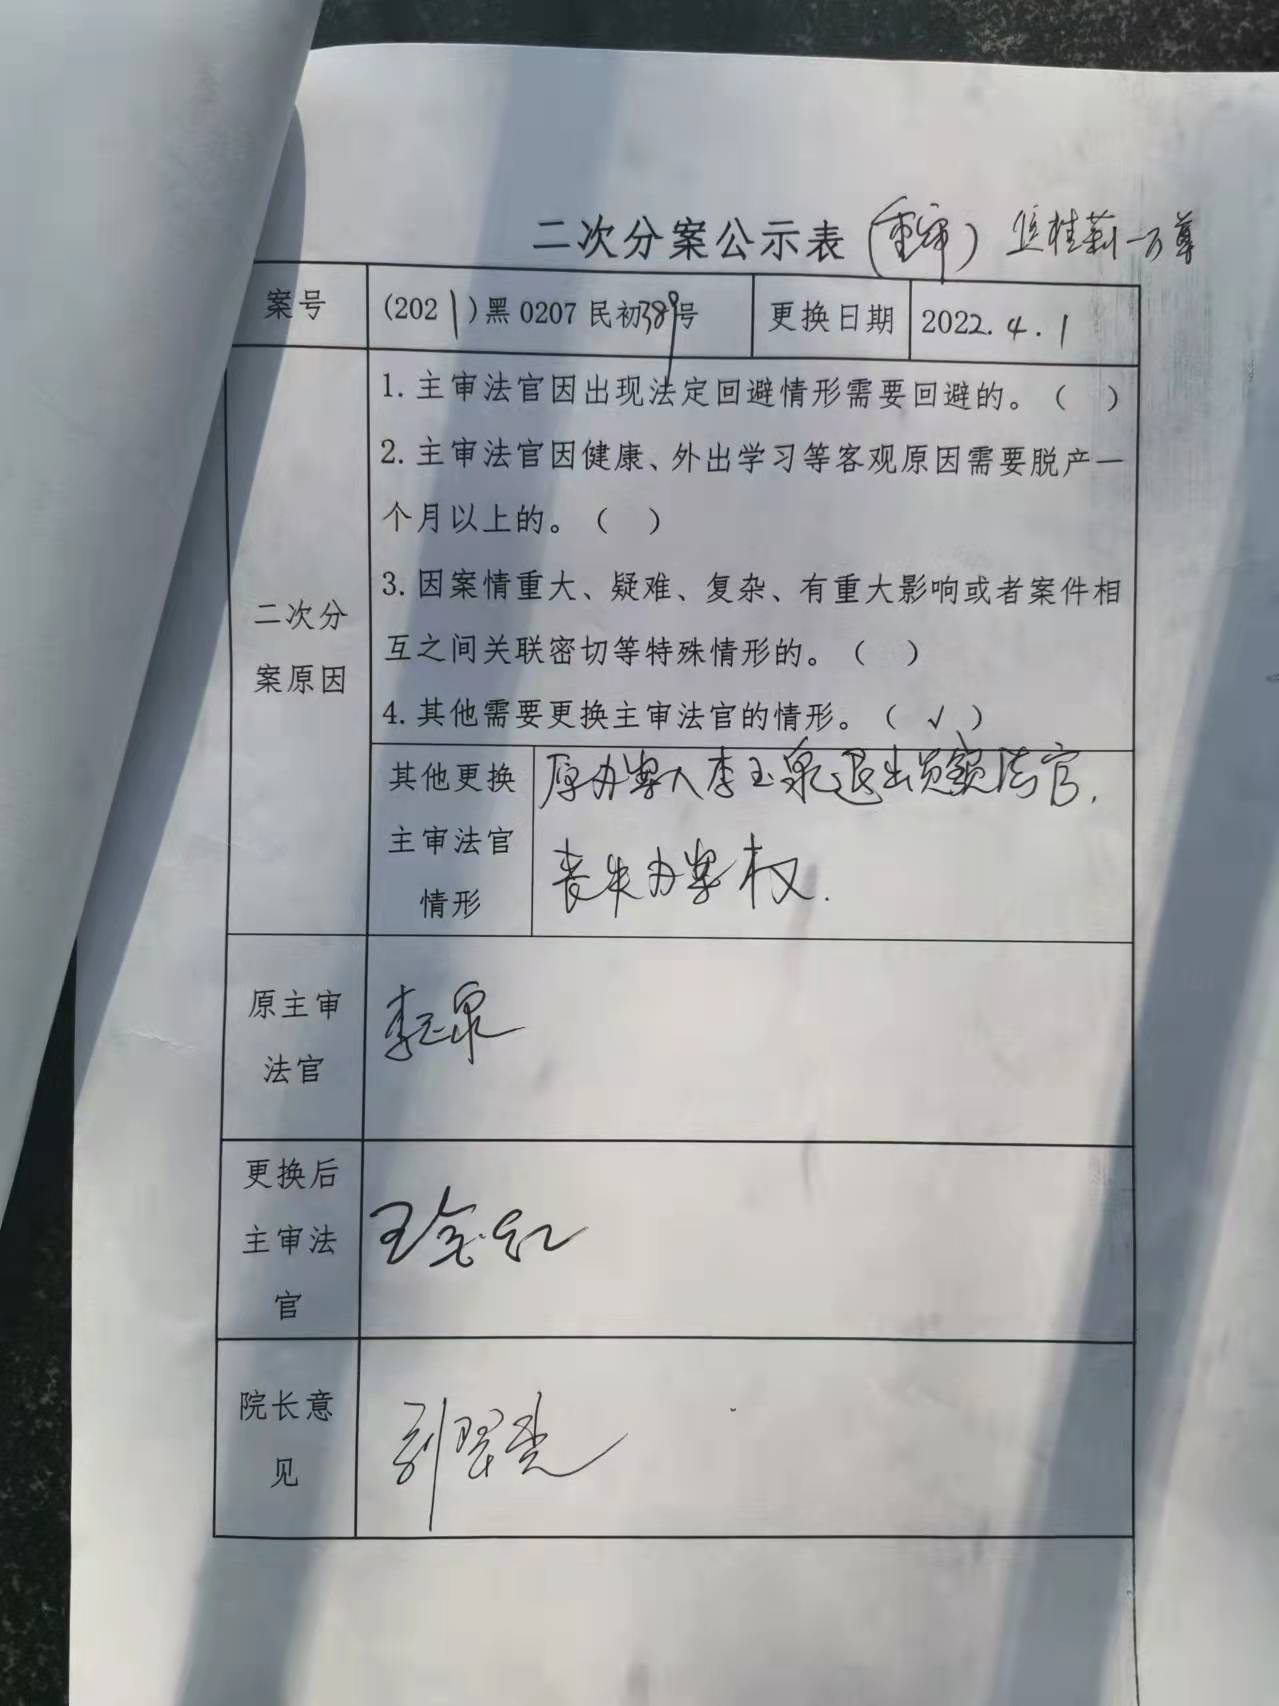 二次分案公示表（重审）桂莉一万尊
案号
(2021)黑0207民初389号
更换日期
2022.4.1
二次分
案原因
1.主审法官因出现法定回避情形需要回避的。（ ）
2.主审法官因健康、外出学习等客观原因需要脱产一
个月以上的。（ ）
3.因案情重大、疑难、复杂、有重大影响或者案件相
互之间关联密切等特殊情形的。（ ）
4.其他需要更换主审法官的情形。（ √ ）
其他更换
主审法官
情形
原办案人李玉泉退出员额法官,
丧失办案权.
原主审
法官
李玉泉
更换后
主审法
官
王
院长意
见
刘